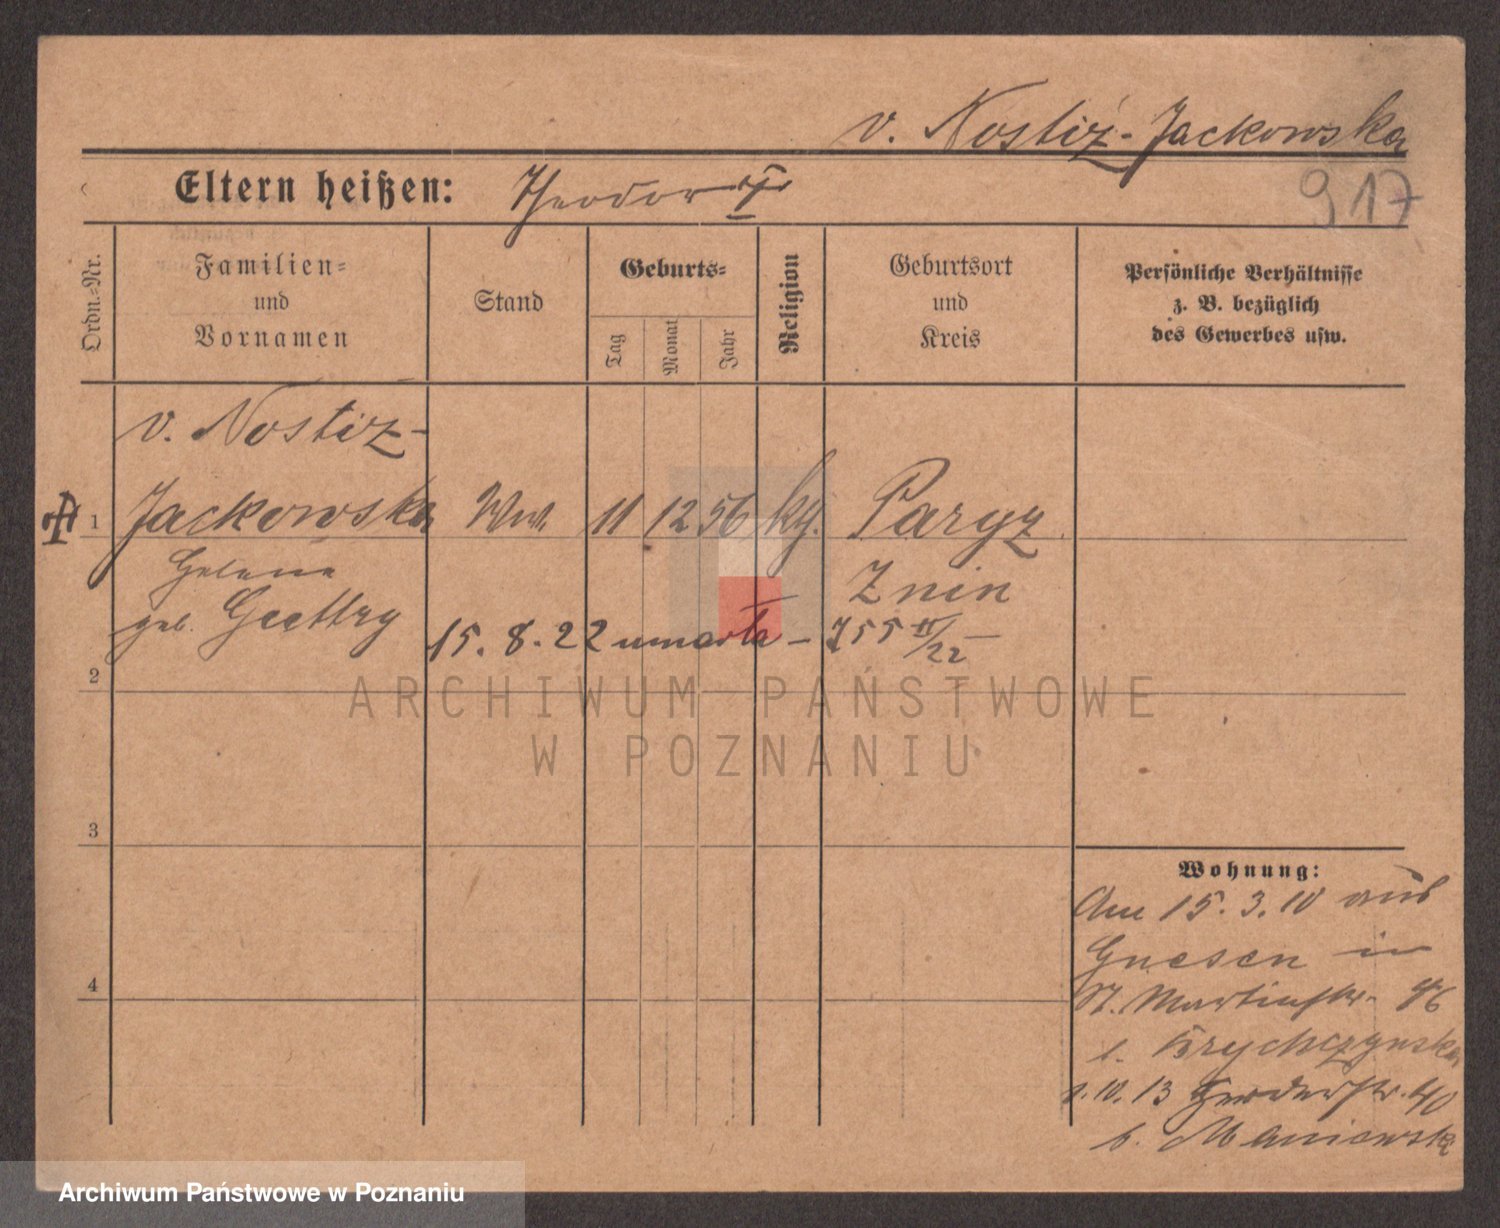 v. Nostiz-Jackowska
917
Eltern heißen: Theodor
Ordn.-Nr.
Familien-
und
Vornamen
Stand
Geburts-
Tag
Monat
Jahr
Religion
Geburtsort
und
Kreis
Persönliche Verhältnisse
z. B. bezüglich
des Gewerbes usw.
v. Nostiz-
1 Jackowska Ww. 11 12 56 kth. Paryz
Helena
Znin
geb.
15. 8. 22 umarła -
2
ARCHIWUM PAŃSTWOWE
W POZNANIU
3
4
Wohnung:
Am 15. 3. 10 aus
Gnesen in
St. Martinstr. 46
b.
1. 10. 13 Herderstr. 40
b. Maniewski
Archiwum Państwowe w Poznaniu